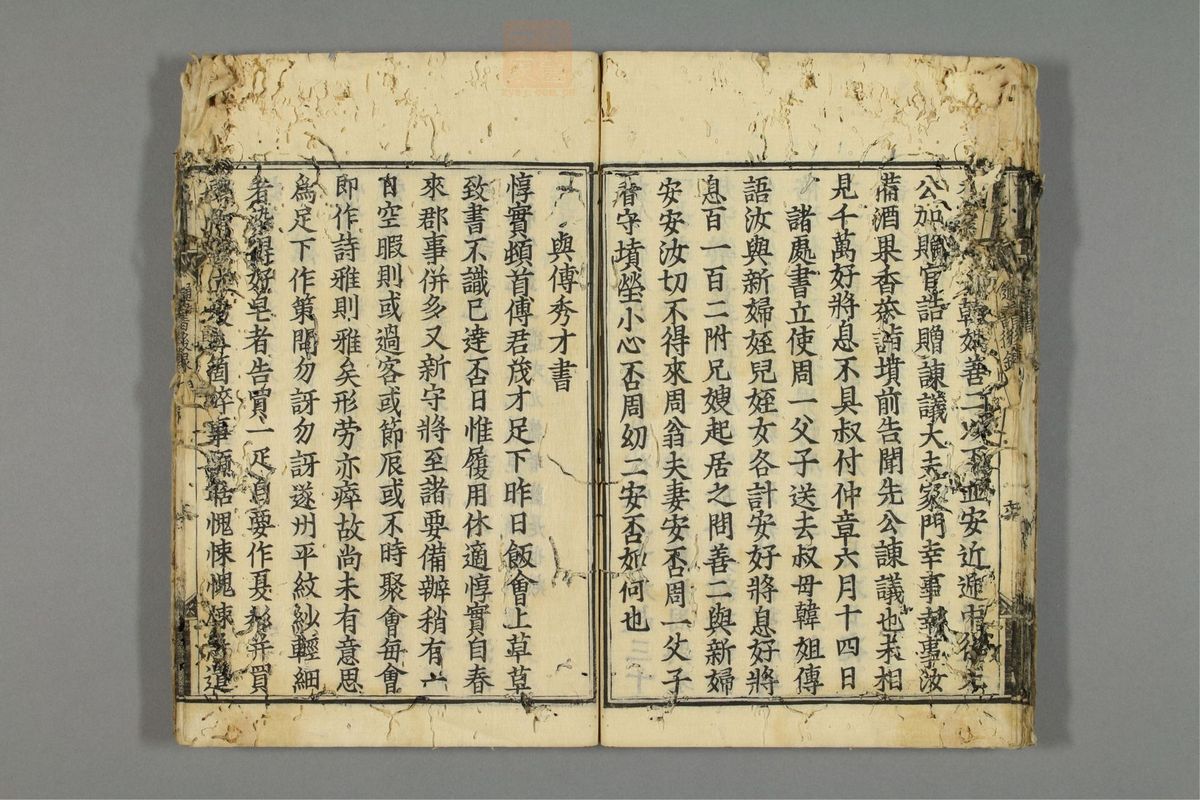 韓姐善二以下並安近遞中
公加贈官誥贈諫議大夫家門幸事幸事汝
備酒果香茶詣墳前告聞先公諫議也未相
見千萬好將息不具叔付仲章六月十四日
諸處書立使周一父子送去叔母韓姐傳
語汝與新婦姪兒姪女各計安好將息好將
息百一百二附兄嫂起居之問善二與新婦
安安汝切不得來周翁夫妻安否周一父子
看守墳塋小心否周幼二安否如何也
與傅秀才書
惇實頓首傅君茂才足下昨日飯會上草草
致書不識已達否日惟履用休適惇實自春
來郡事併多又新守將至諸要備辦稍有一
日空暇則或過客或節辰或不時聚會每會
即作詩雅則雅矣形勞亦瘁故尚未有意思
爲足下作策問勿訝勿訝遂州平紋紗輕細
者染得好皂者告買一疋自要作夏衫并買
事須恬愧悚愧悚